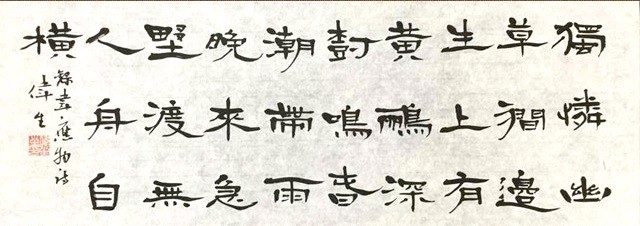 獨憐幽
草澗邊
生上有
黃鸝深
樹鳴春
潮帶雨
晚來急
野渡無
人舟自
橫
錄韋應物詩
偉生